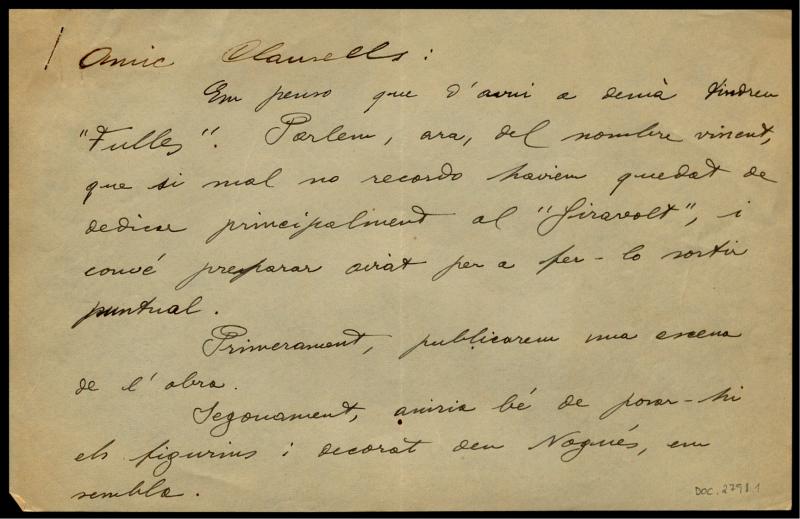 Amic Clausells:
Em penso que d'avui a demà tindreu
"Fulles". Parlem, ara, del nombre vinent,
que si mal no recordo havíem quedat de
dedicar principalment al "Giravolt", i
convé preparar aviat per a fer-lo sortir
puntual.
Primerament, publicarem una escena
de l'obra.
Segonament, aniria bé de posar-hi
els figurins i decorat den Nogués, em
sembla.
DOC. 2791.1